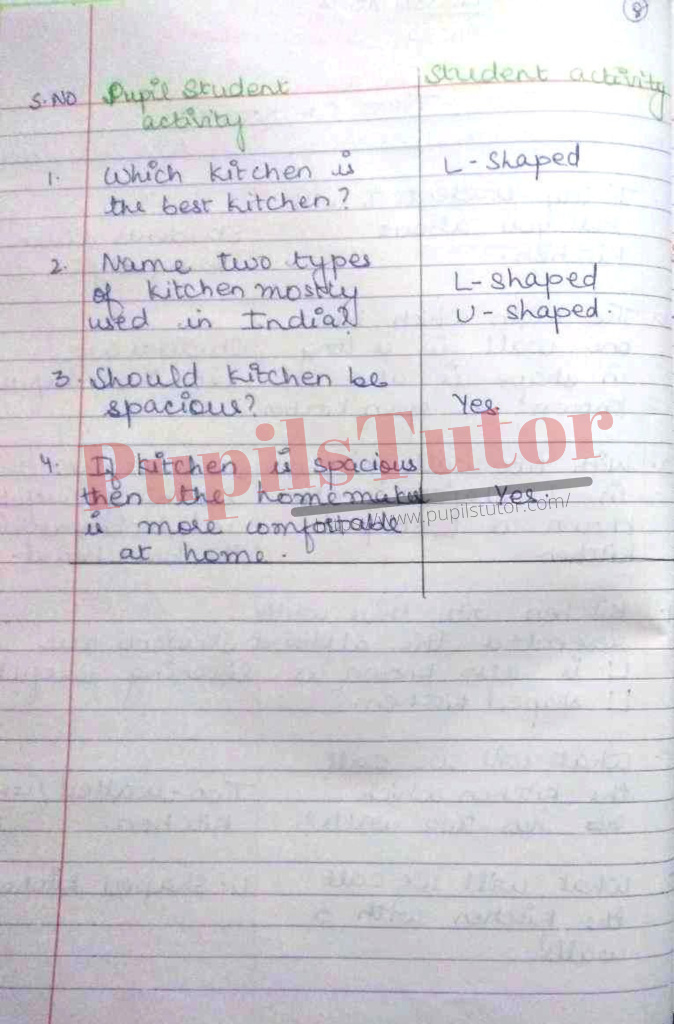 8
S.NO Pupil Student Student activity
activity
1. Which kitchen is L-shaped
the best kitchen?
2. Name two types
of kitchen mostly L-shaped
used in India? U-shaped.
3. Should kitchen be
spacious? Yes.
PupilsTutor
4. If kitchen is spacious
then the homemaker Yes.
www.pupilstutor.com/
is more comfortable
at home.